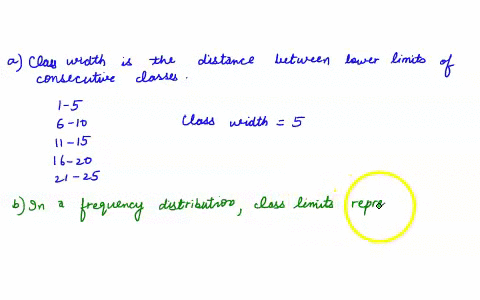 a) Class width is the distance between lower limits of
consecutive classes.
1-5
6-10
Class width = 5
11-15
16-20
21-25
b) In a frequency distribution, class limits repre